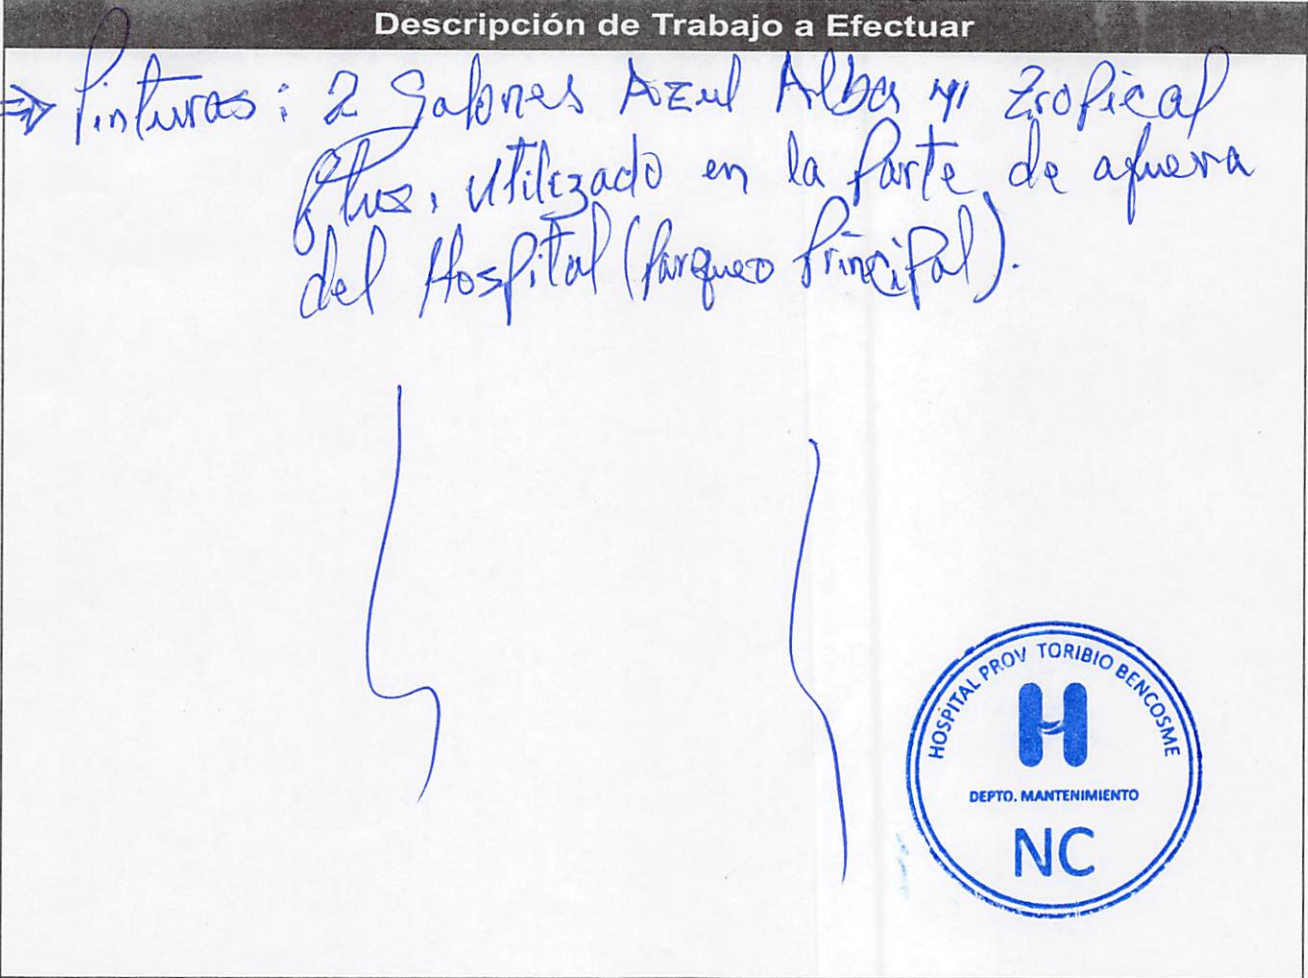 Descripción de Trabajo a Efectuar
⇒ Pinturas: 2 Galones Azul Alba y/ Tropical
Plus, utilizado en la Parte de afuera
del Hospital (Parqueo Principal).
HOSPITAL PROV TORIBIO BENCOSME
H
DEPTO. MANTENIMIENTO
NC